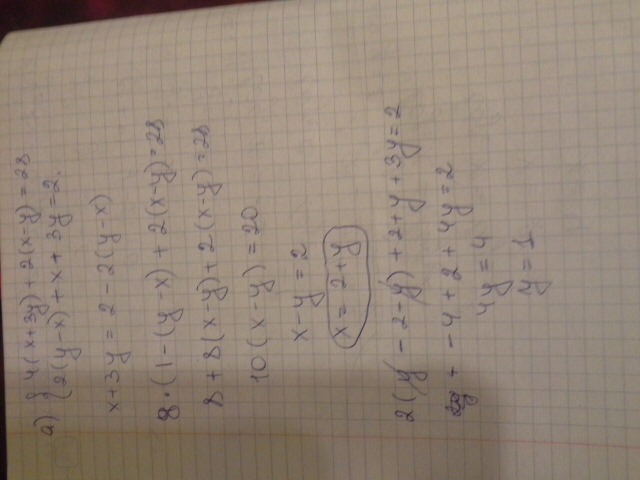 а) { 4(x+3y)+2(x-y)=28
{ 2(y-x)+x+3y=2.
x+3y = 2-2(y-x)
8·(1-(y-x)+2(x-y)=28
8+8(x-y)+2(x-y)=28
10(x-y)=20
x-y=2
x=2+y
2(y-2-y)+2+y+3y=2
-4+2+4y=2
4y=4
y=1